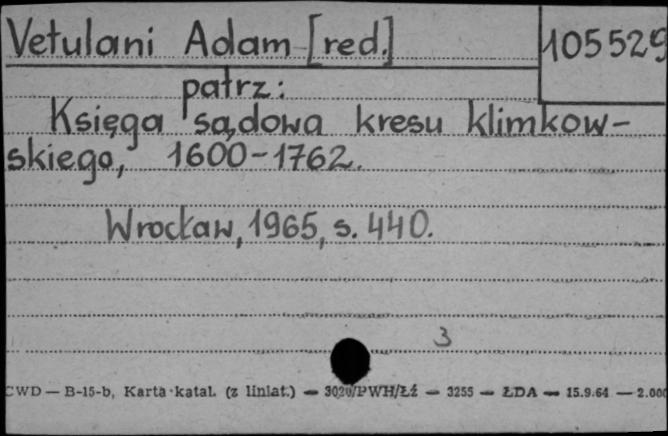 Vetulani Adam [red.] 105529
patrz:
Księga sądowa kresu klimkow-
skiego, 1600-1762.
Wrocław, 1965, s. 440.
3
CWD — B-15-b, Karta katal. (z liniat.) — 3020/PWH/Łź — 3255 — ŁDA — 15.9.64 — 2.000